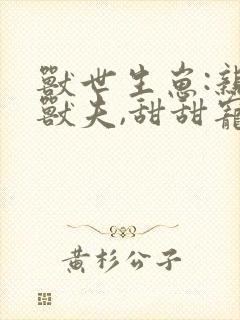 獸世生崽:親
獸夫,甜甜寵
黃杉公子